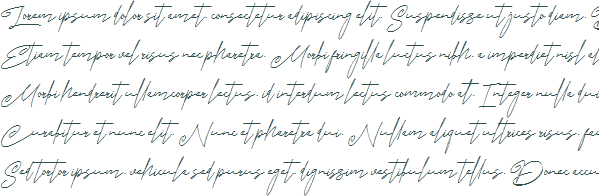 Lorem ipsum dolor sit amet, consectetur adipiscing elit. Suspendisse ut justo diam.
Etiam tempor vel risus nec pharetra. Morbi fringilla luctus nibh, a imperdiet nisl
Morbi hendrerit ullamcorper lectus, id interdum lectus commodo at. Integer nulla dui
Curabitur et nunc elit. Nunc et pharetra dui. Nullam aliquet ultrices risus,
Sed tortor ipsum, vehicula sed purus eget, dignissim vestibulum tellus. Donec